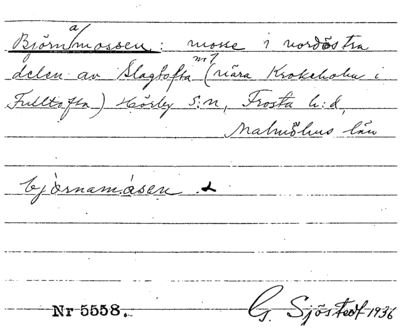 Björna/mossen: mosse i nordöstra
delen av Slagtofta m1 (nära Krokeholm i
Fulltofta) Hörby s:n, Frosta h:d,
Malmöhus län
bjòrnamåsen
Nr 5558.
G. Sjöstedt 1936